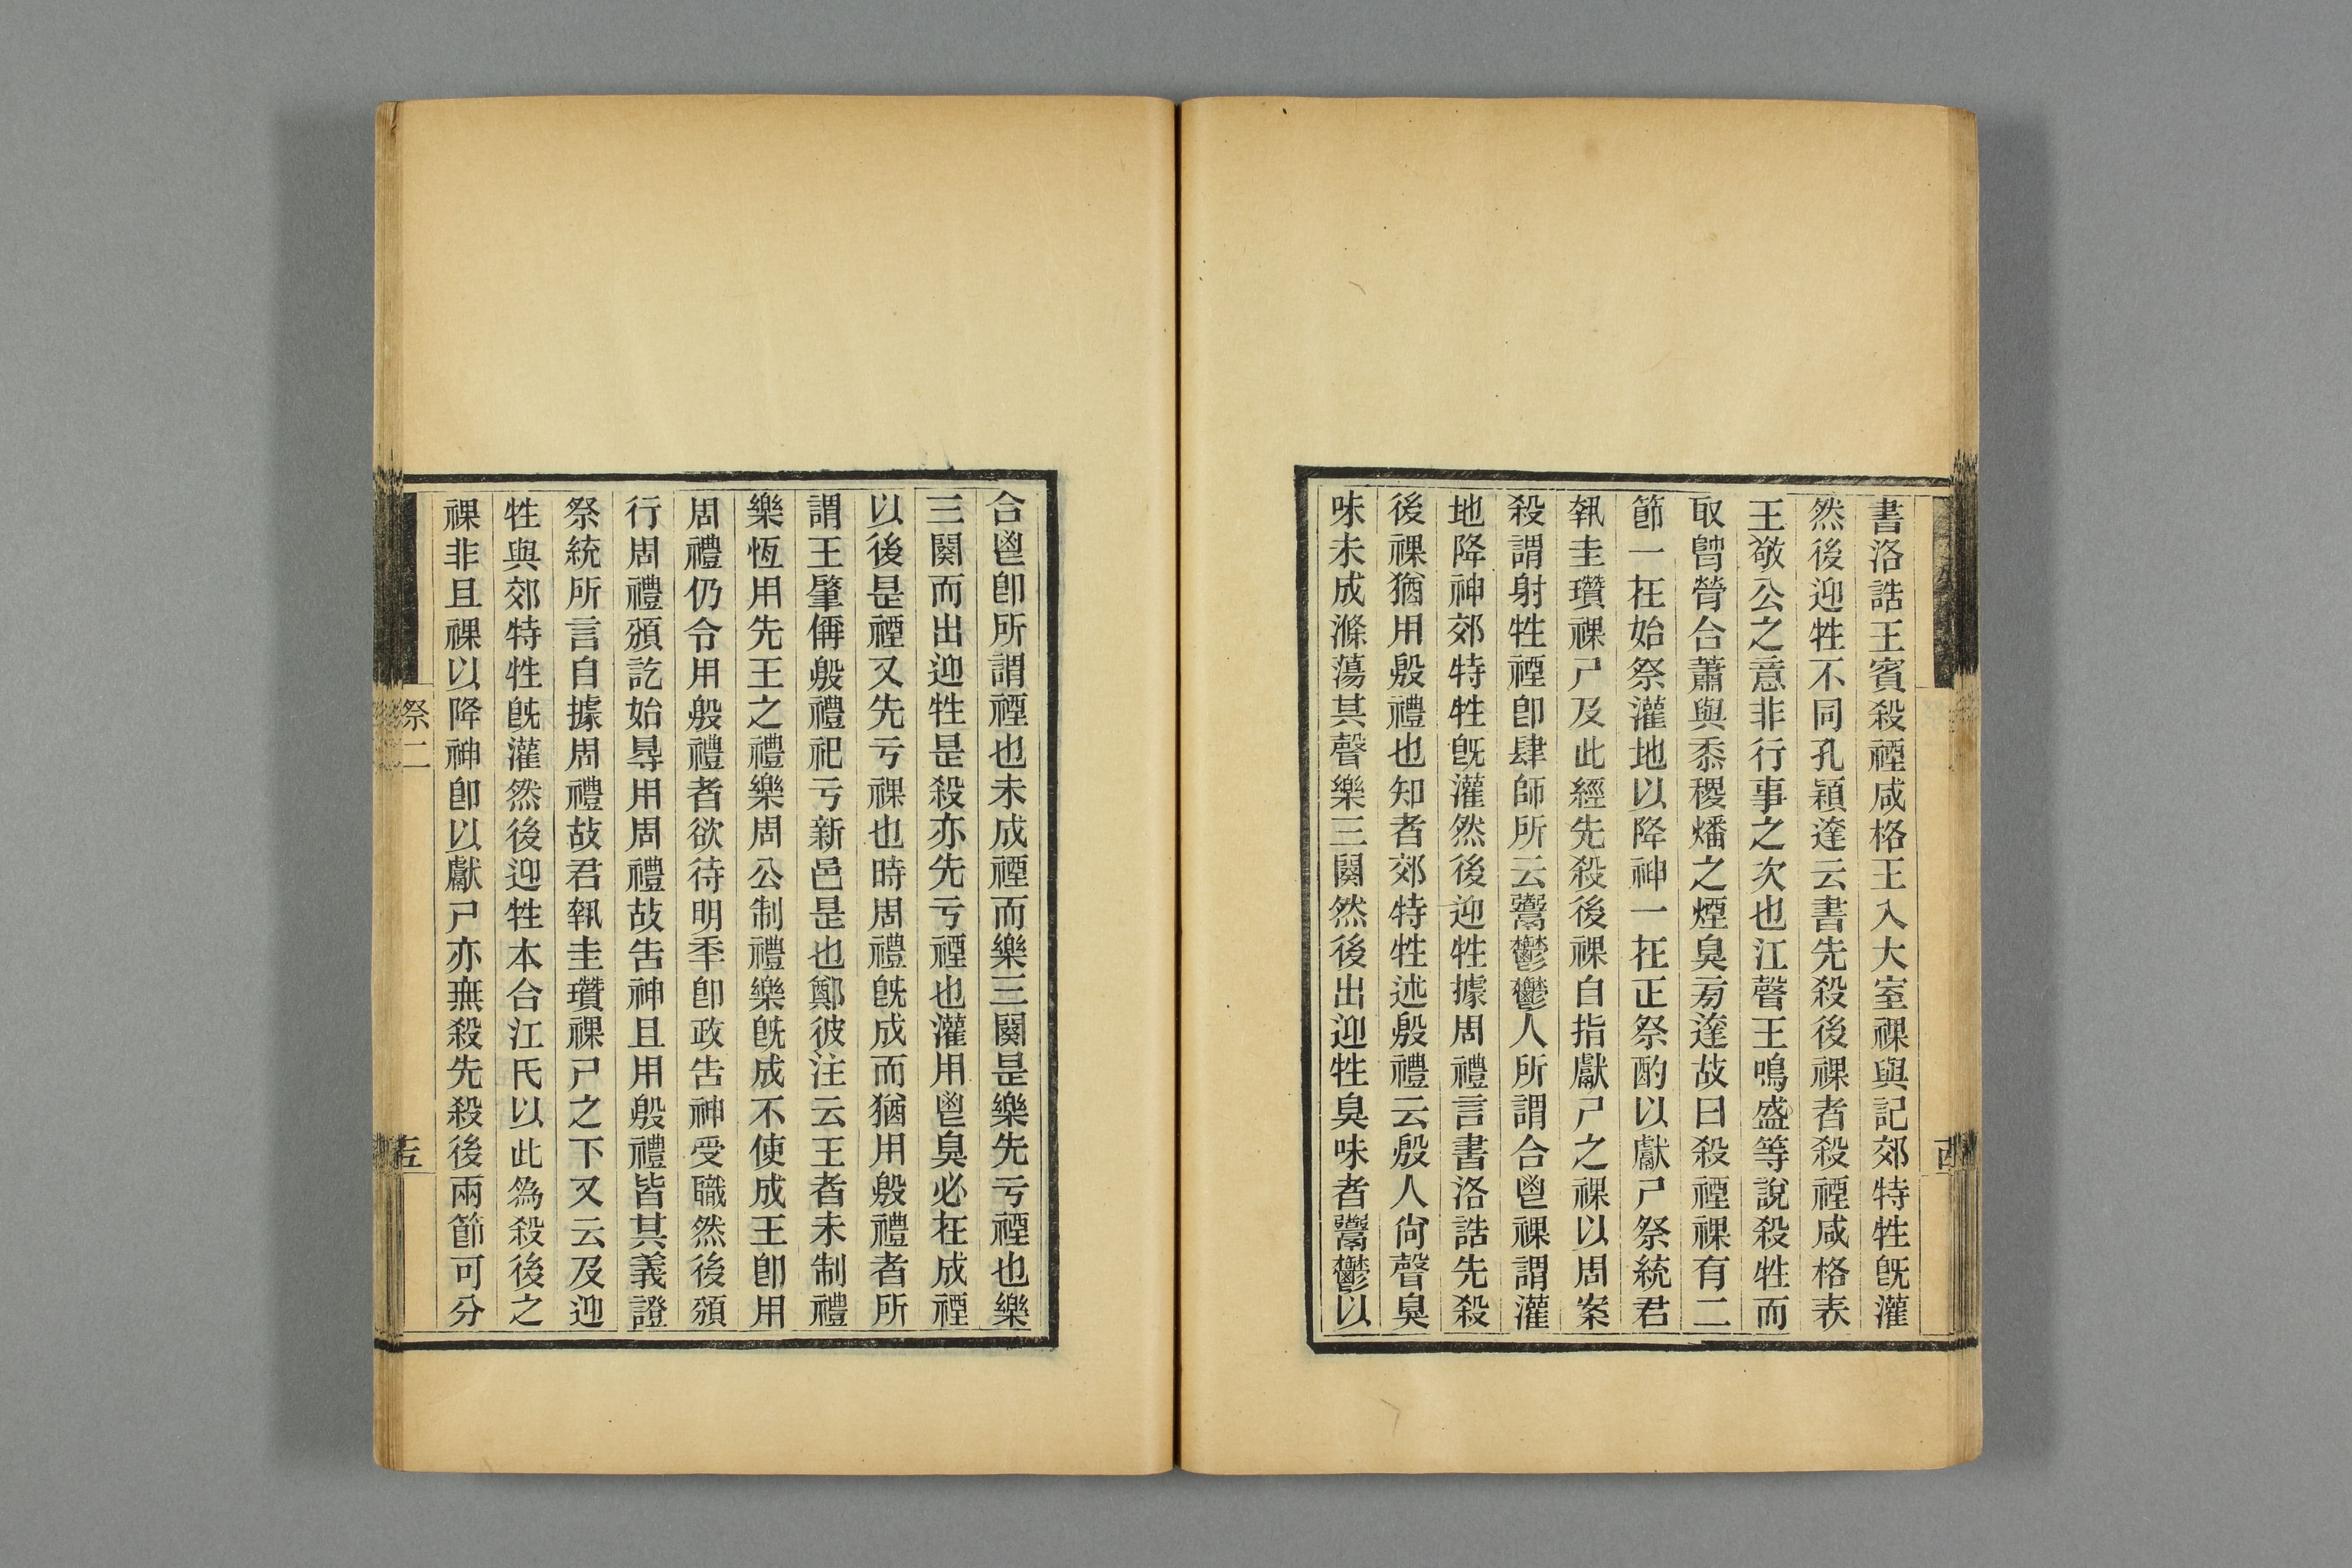 書洛誥王賓殺禋咸格王入大室祼與記郊特牲旣灌
然後迎牲不同孔穎達云書先殺後祼者殺禋咸格表
王敬公之意非行事之次也江聲王鳴盛等說殺牲而
取膋合蕭與黍稷燔之煙臭㫄達故曰殺禋祼有二
節一在始祭灌地以降神一在正祭酌以獻尸祭統君
執圭瓚祼尸及此經先殺後祼自指獻尸之祼以周案
殺謂射牲禋卽肆師所云鬻鬱鬱人所謂合鬯祼謂灌
地降神郊特牲旣灌然後迎牲據周禮言書洛誥先殺
後祼猶用殷禮也知者郊特牲述殷禮云殷人尙聲臭
味未成滌蕩其聲樂三闋然後出迎牲臭味者鬻鬱以
合鬯卽所謂禋也未成禋而樂三闋是樂先亏禋也樂
三闋而出迎牲是殺亦先亏禋也灌用鬯臭必在成禋
以後是禋又先亏祼也時周禮旣成而猶用殷禮者所
謂王肇偁殷禮祀亏新邑是也鄭彼注云王者未制禮
樂恆用先王之禮樂周公制禮樂旣成不使成王卽用
周禮仍令用殷禮者欲待明秊卽政告神受職然後頒
行周禮頒訖始㝵用周禮故告神且用殷禮皆其義證
祭統所言自據周禮故君執圭瓚祼尸之下又云及迎
牲與郊特牲旣灌然後迎牲本合江氏以此爲殺後之
祼非且祼以降神卽以獻尸亦無殺先殺後兩節可分
祭二